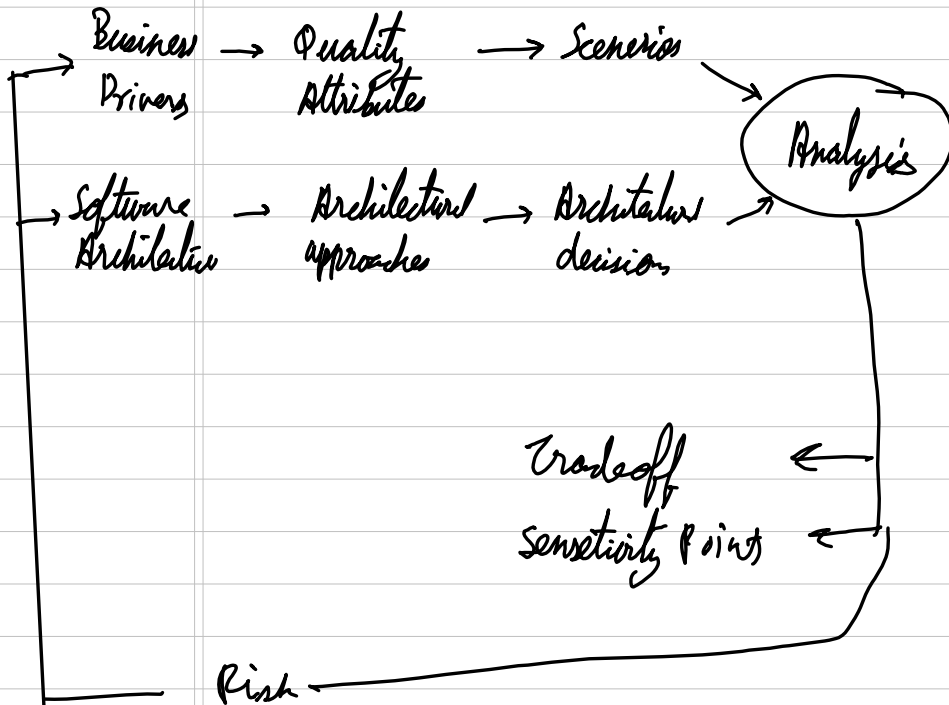 Business
Drivers
Quality
Attributes
Scenerios
Analysis
Software
Architecture
Architectural
approaches
Architectural
decisions
Tradeoff
Sensetivity Points
Risk